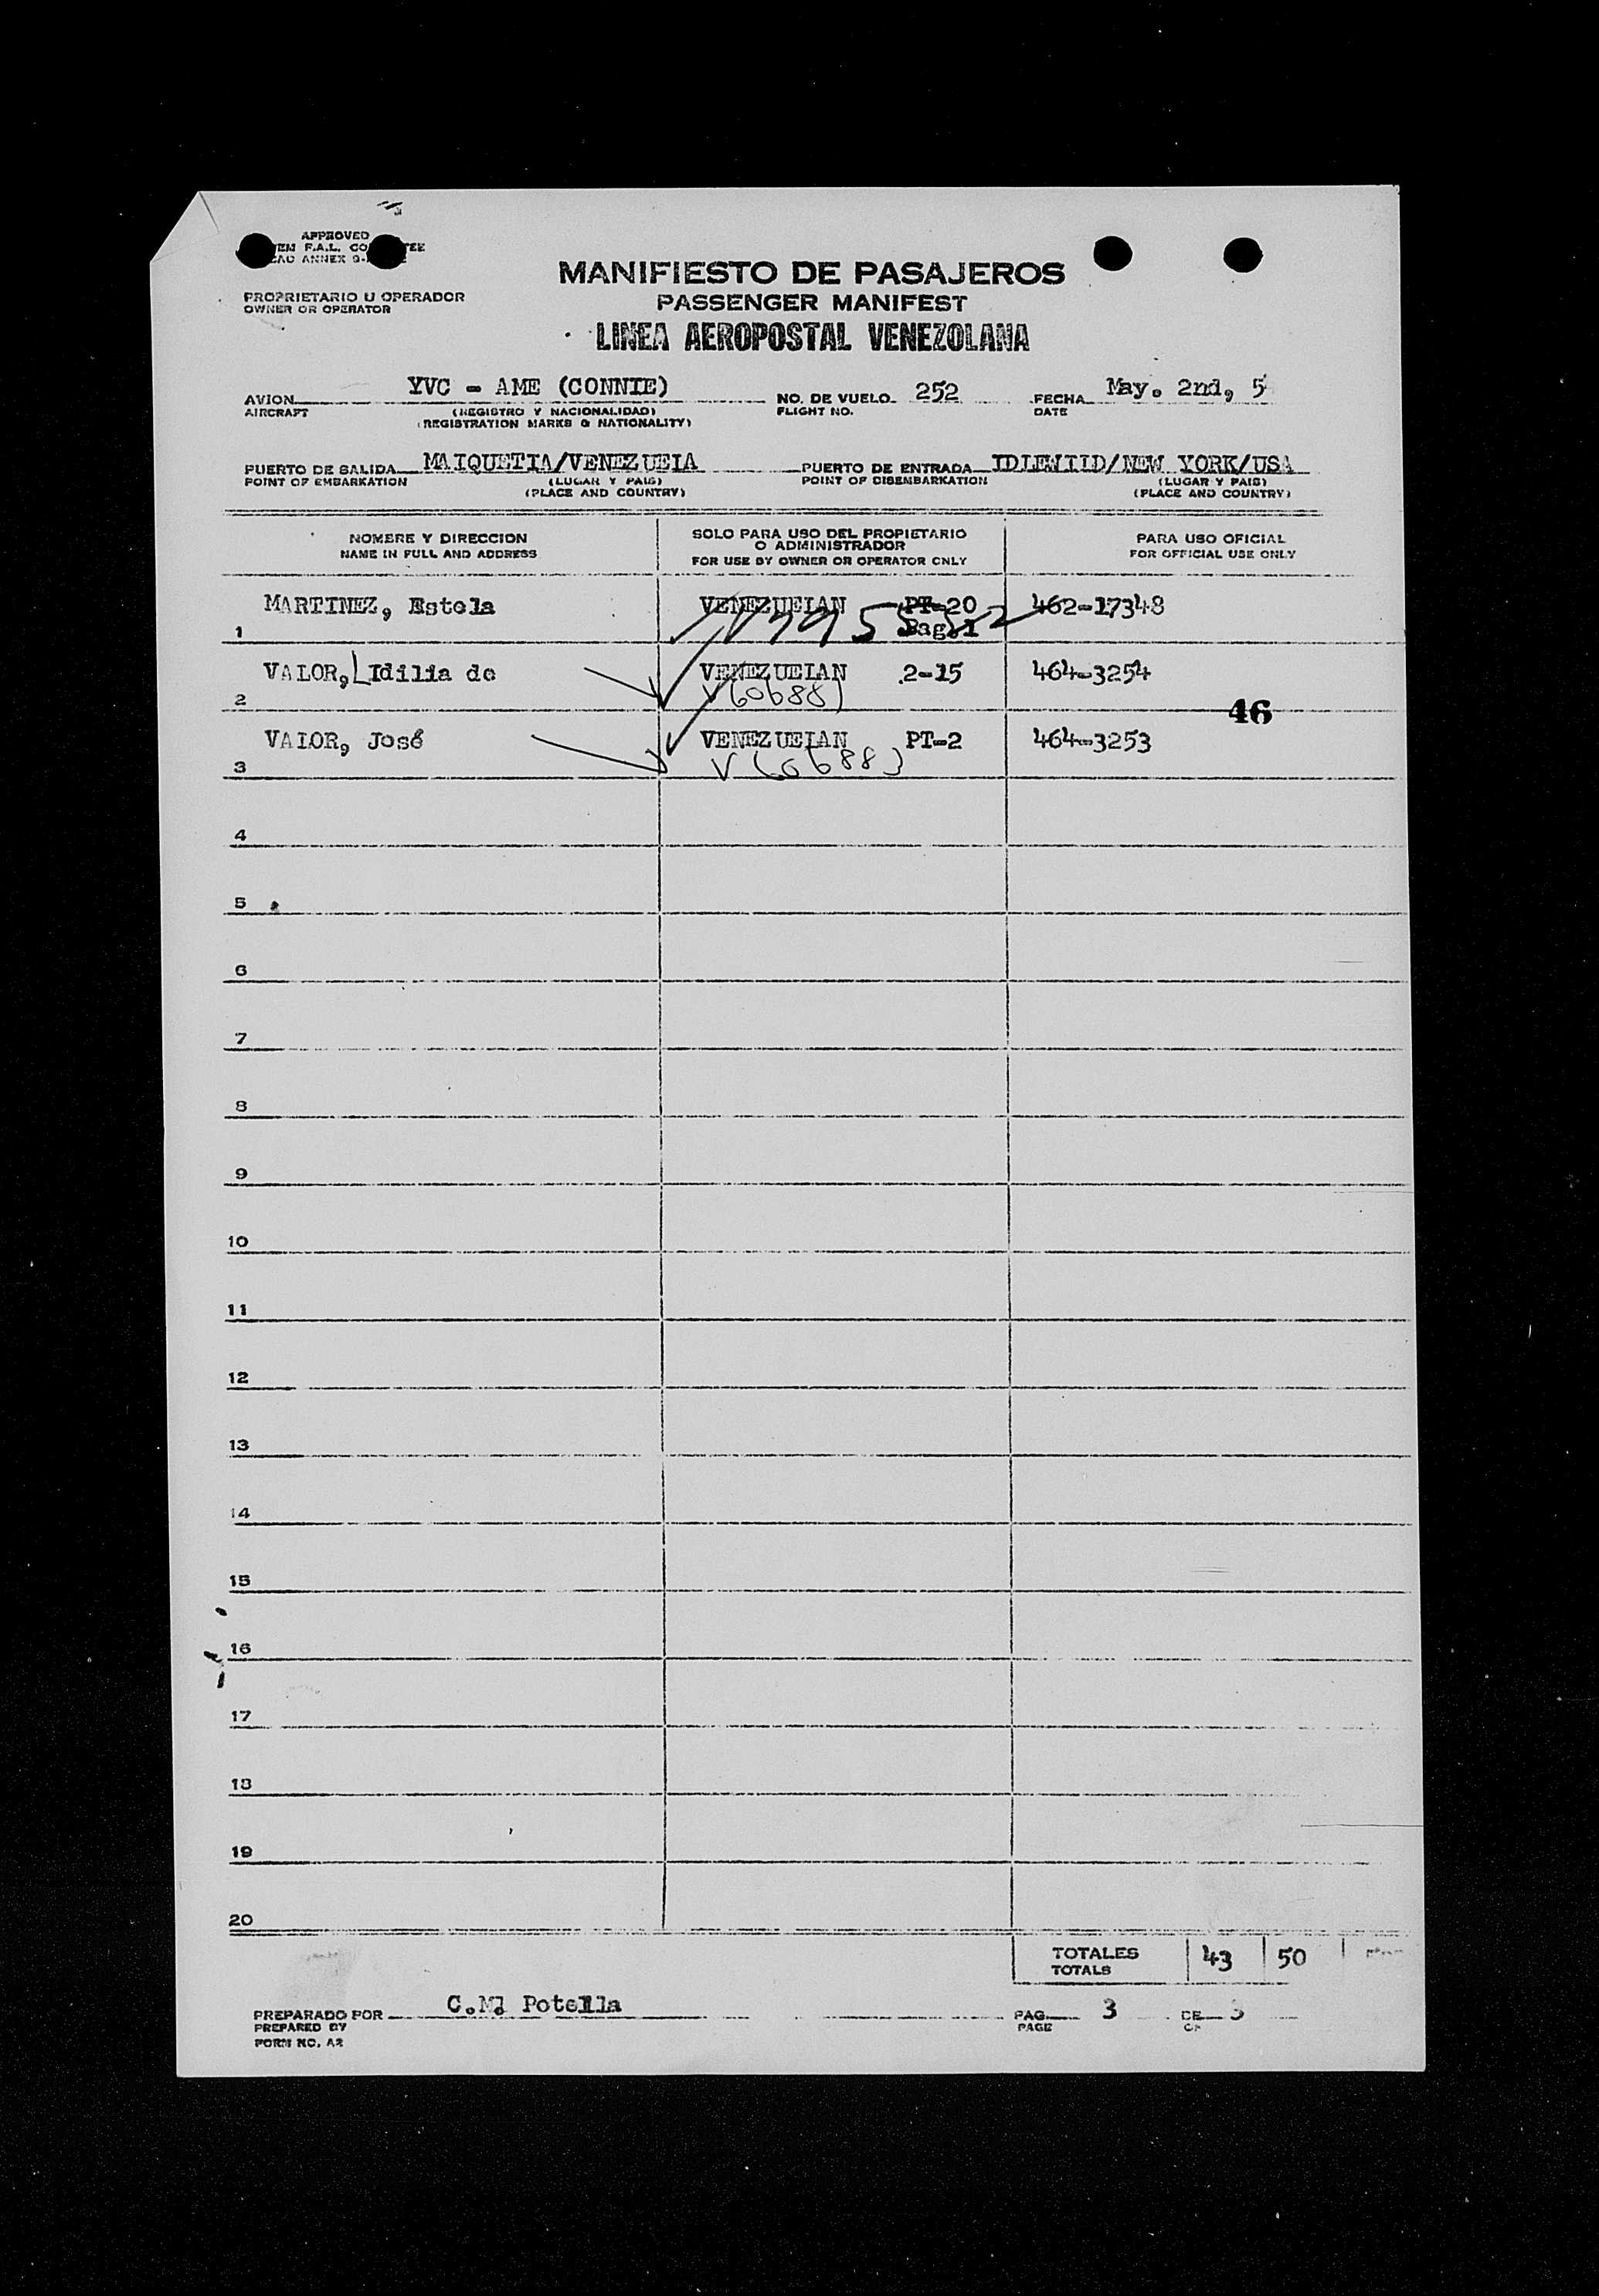 APPROVED
F.A.L.
ANNEX 9-
MANIFIESTO DE PASAJEROS
PROPRIETARIO U OPERADOR
OWNER OR OPERATOR
PASSENGER MANIFEST
LINEA AEROPOSTAL VENEZOLANA
AVION YVC - AME (CONNIE) NO. DE VUELO 252 FECHA May. 2nd, 5
AIRCRAFT (REGISTRO Y NACIONALIDAD) FLIGHT NO. DATE
(REGISTRATION MARKS & NATIONALITY)
PUERTO DE SALIDA MAIQUETIA/VENEZUELA PUERTO DE ENTRADA IDLEWILD/NEW YORK/USA
POINT OF EMBARKATION (LUGAR Y PAIS) POINT OF DISEMBARKATION (LUGAR Y PAIS)
(PLACE AND COUNTRY) (PLACE AND COUNTRY)
NOMBRE Y DIRECCION SOLO PARA USO DEL PROPIETARIO O ADMINISTRADOR PARA USO OFICIAL
NAME IN FULL AND ADDRESS FOR USE BY OWNER OR OPERATOR ONLY FOR OFFICIAL USE ONLY
MARTINEZ, Estela VENEZUELAN PT-20 462-17348
1 Pag. 1
VALOR, Idilia de VENEZUELAN 2-15 464-3254
2 V(60688) 46
VALOR, José VENEZUELAN PT-2 464-3253
3 V(60688)
4
5
6
7
8
9
10
11
12
13
14
15
16
17
18
19
20
TOTALES 43 50
TOTALS
PREPARADO POR C.M. Potella PAG. 3 DE 3
PREPARED BY PAGE OF
FORM NO. A2